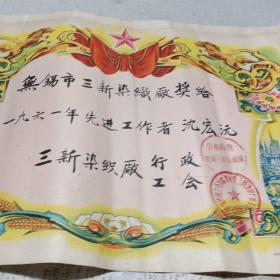 無锡市三新染織廠獎给
一九六一年先进工作者沈宏沅
三新染织廠行政
工会